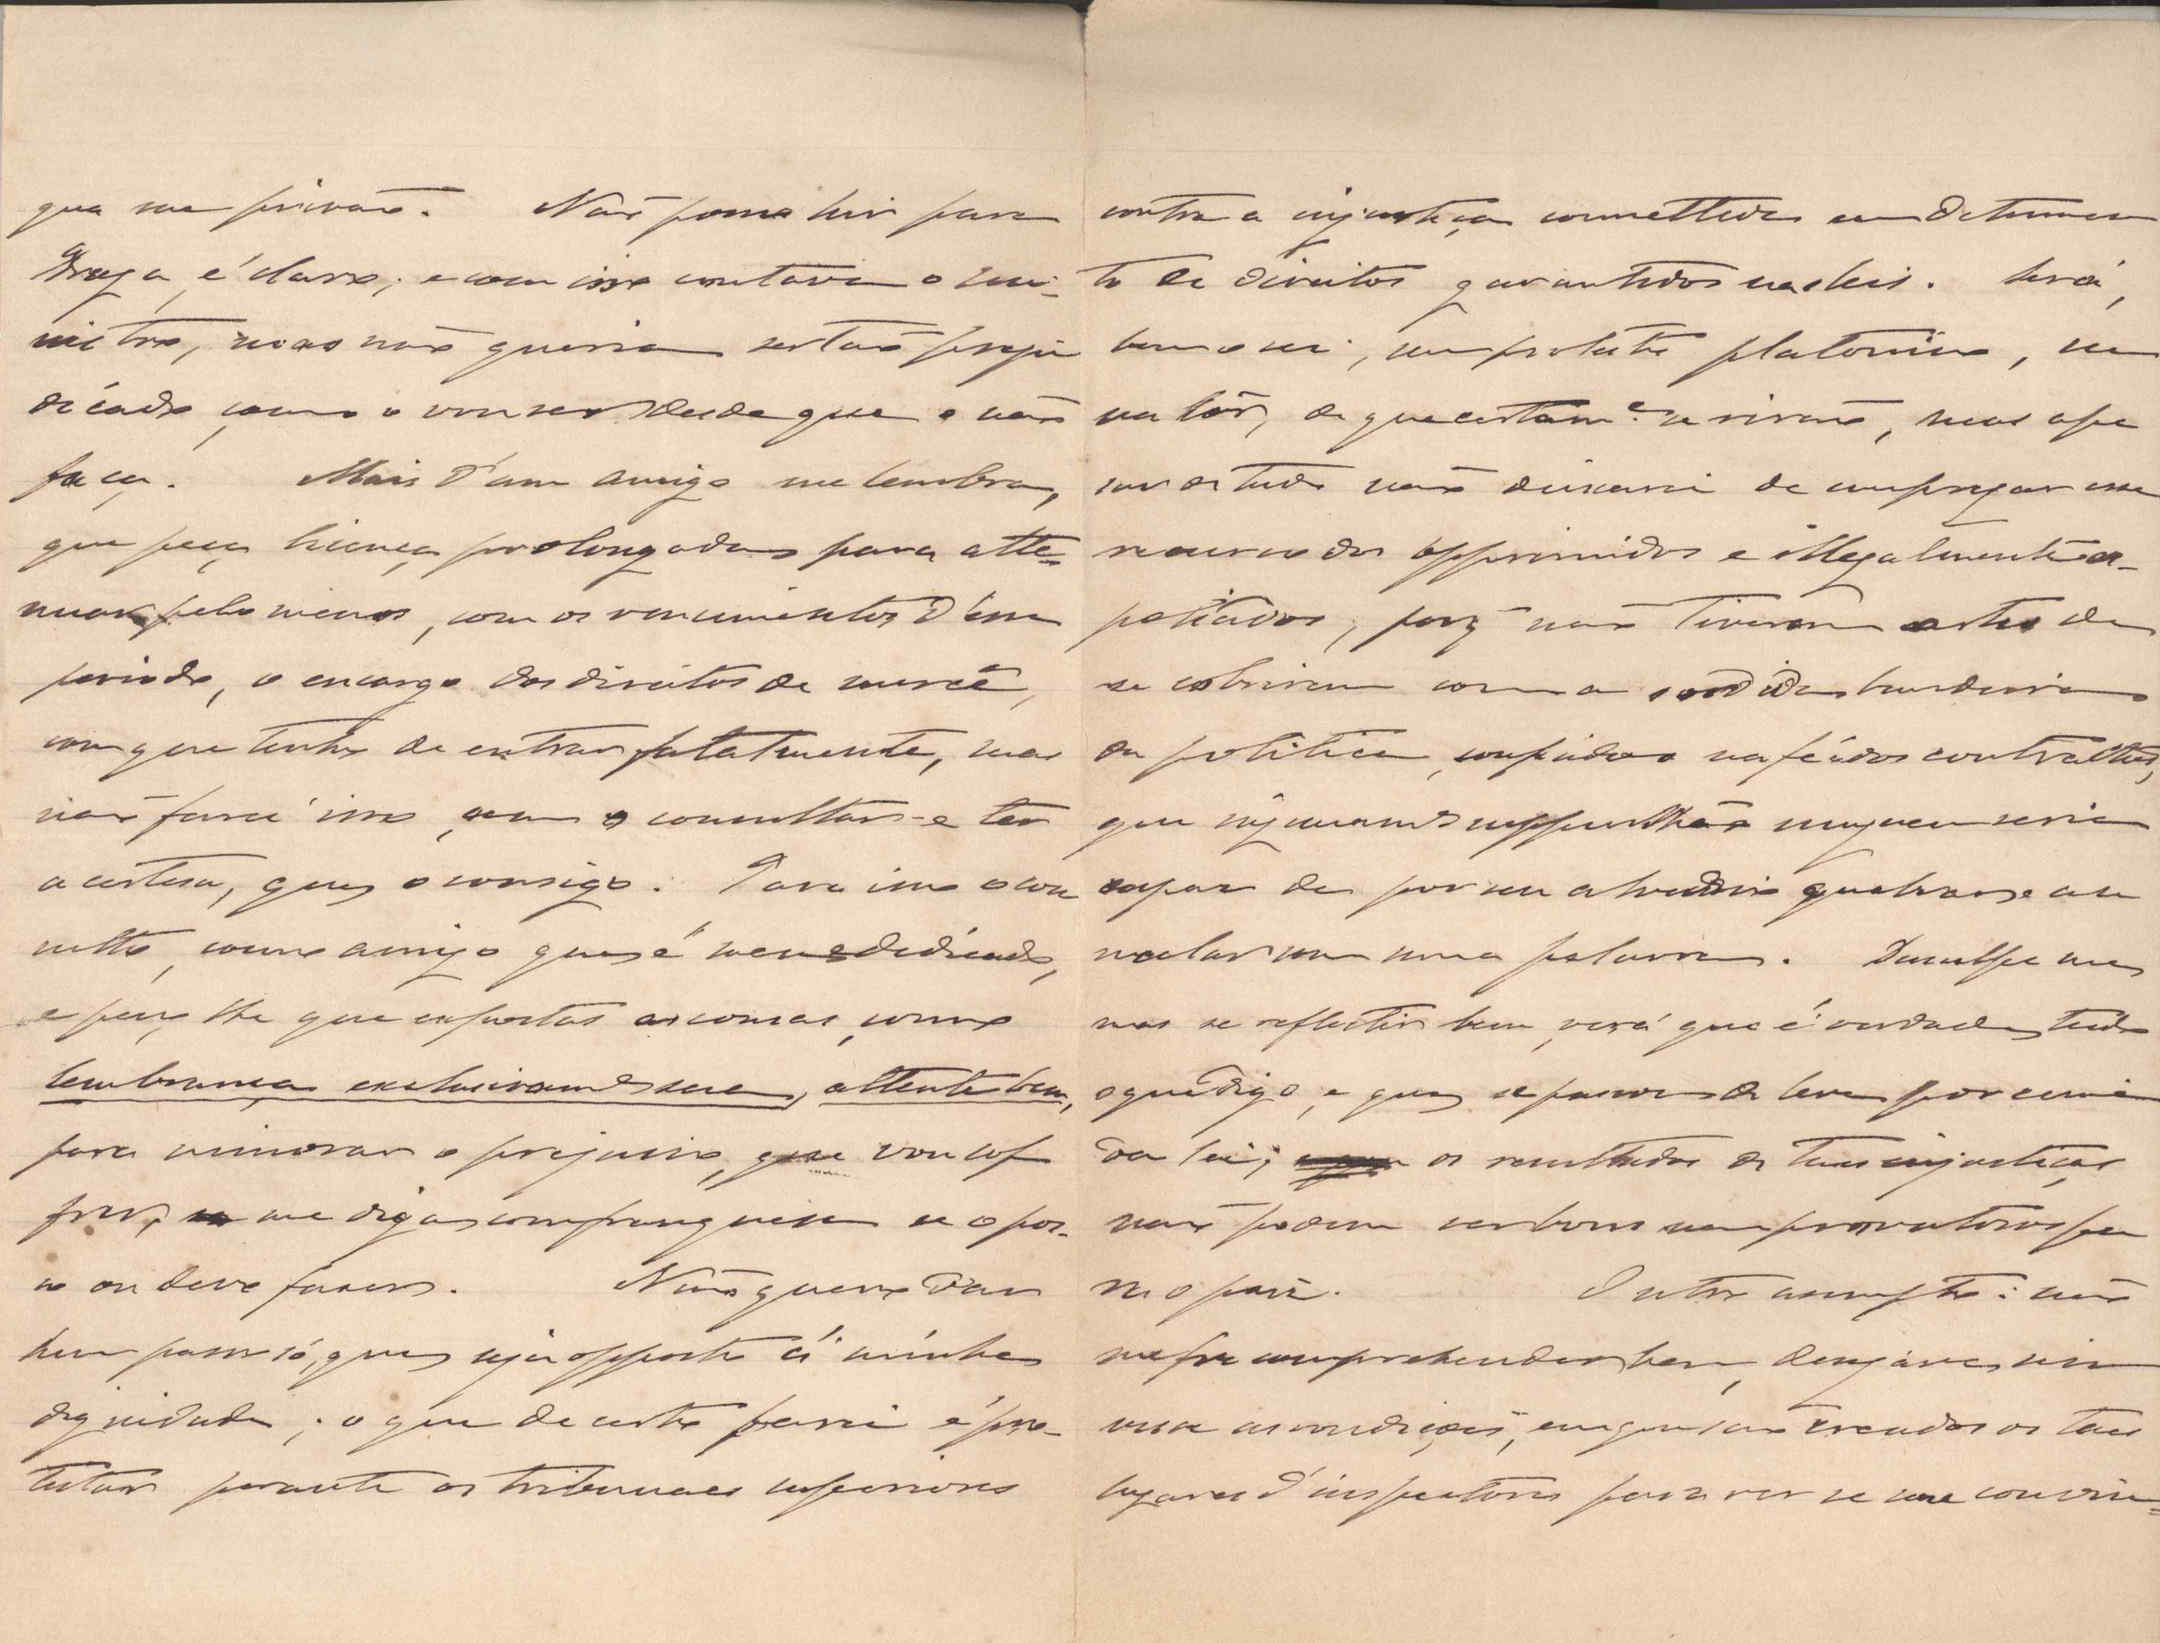 que me privarão. Não posso hir para
Braga, é claro; e com isso contava o mi-
nistro, mas não queria ser tão preju
dicado, como o vou ser desde que o não
faça. Mais d'um amigo me lembra,
que peça licença prolongada para atte-
nuar, pelo menos, com os vencimentos d'esse
periodo, o encargo dos direitos de mercê,
com que tenho de entrar fatalmente, mas
não farei isso, sem o consultar e ter
a certesa, que o consigo. Para isso o con
sulto, como amigo que é meu e dedicado,
e peço lhe que expostas as cousas, como
lembrança exclusivam.e sua, attente bem,
para minorar o prejuiso, que vou sof
frer, me diga com franquesa se o pos-
so ou devo faser. Não quero dar
hum passo só, que seja opposto á minha
dignidade; o que de certo farei é pro-
testar perante os tribunaes superiores
contra a injustiça commettida em detrimen
to de direitos garantidos nas leis. Será,
bem o sei, um protesto platonico, sem
valôr, de que certam.e se rirão, mas ape
sar de tudo não deixarei de empregar esse
recurso dos opprimidos e illegalmente es-
poliados, porq não tiverão artes de
se cobrirem com a sordida bandeira
da politica, confiados na fé dos contractos,
que ingenuam.e suppunhão ninguem seria
capaz de por seu alvedrio quebrar e an
nular uma palavra. Desculpe me,
mas se reflectir bem, verá que é verdade tudo
o que digo, e que se passou de leve por cima
da lei; os resultados de taes injustiças
não podem ser bons nem proveitosos pa
ra o pais. Outro assumpto: não
sufre comprehender bem, desejava sim
as condições, em que são creados os taes
lugares d'inspectores para ver se me convin-